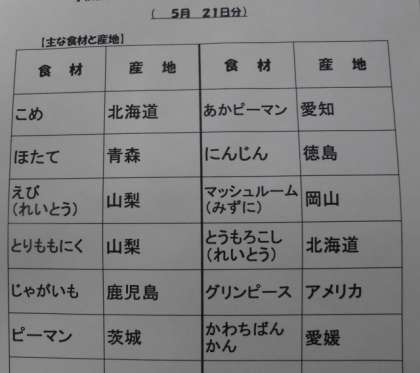 ( 5月 21日分)
【主な食材と産地】
食 材 産 地 食 材 産 地
こめ 北海道 あかピーマン 愛知
ほたて 青森 にんじん 徳島
えび
(れいとう) 山梨 マッシュルーム
(みずに) 岡山
とりももにく 山梨 とうもろこし
(れいとう) 北海道
じゃがいも 鹿児島 グリンピース アメリカ
ピーマン 茨城 かわちばん
かん 愛媛